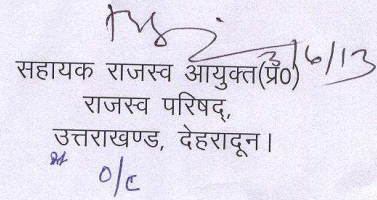 3/6/13
सहायक राजस्व आयुक्त(प्र0)
राजस्व परिषद्,
उत्तराखण्ड, देहरादून।
O/C